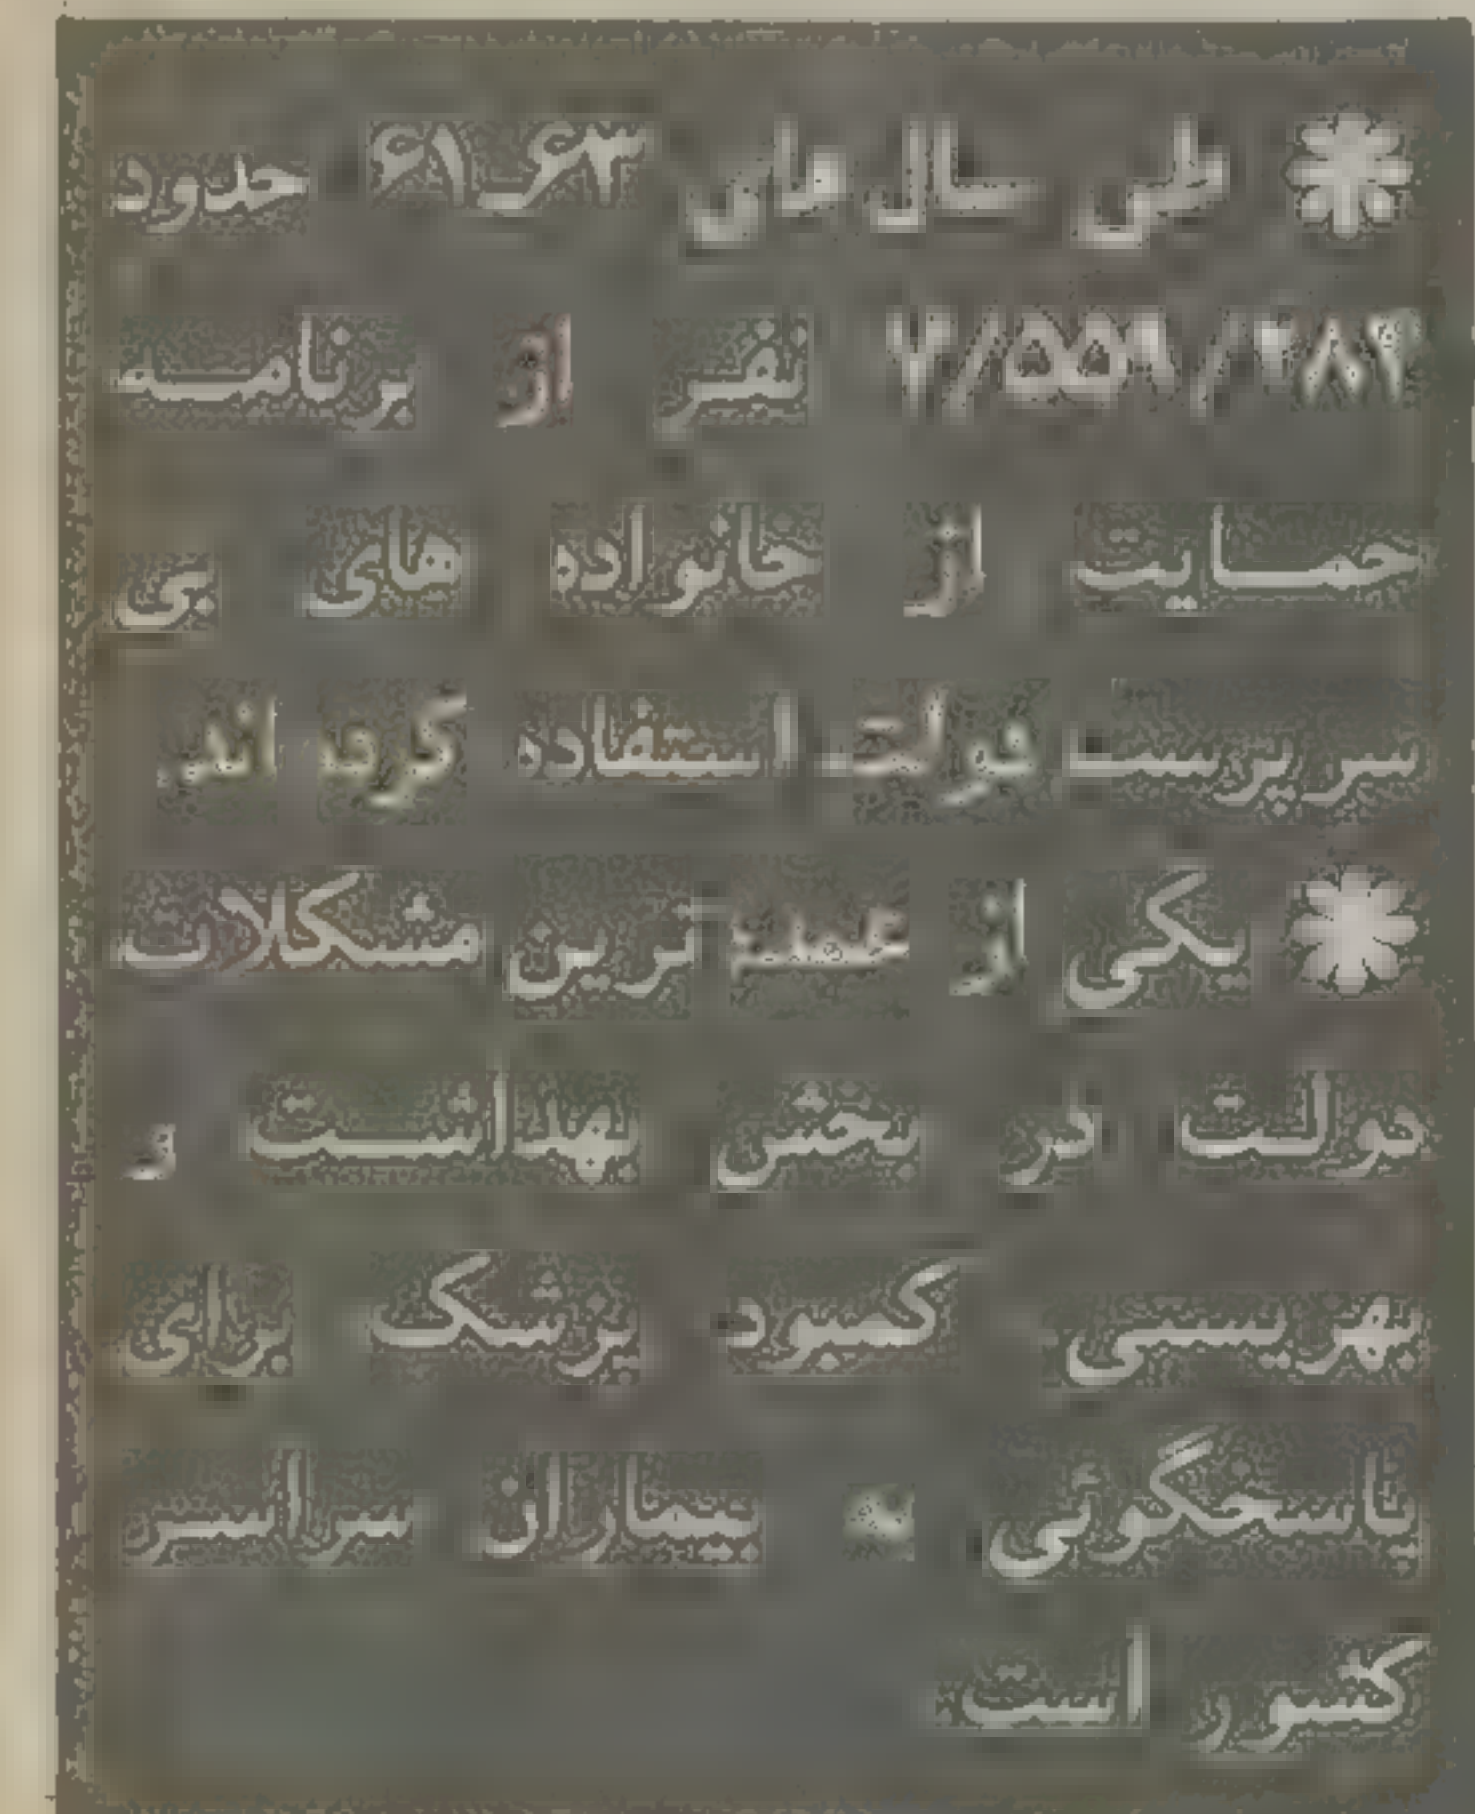 * طی سال های ۶۳ـ۶۱ حدود
نفر از برنامه
حمایت از خانواده های بی
سرپرست دولت استفاده کرده اند.
* یکی از عمده ترین مشکلات
دولت در بخش بهداشت و
بهزیستی کمبود پزشک برای
پاسخگوئی به بیماران سراسر
کشور است.